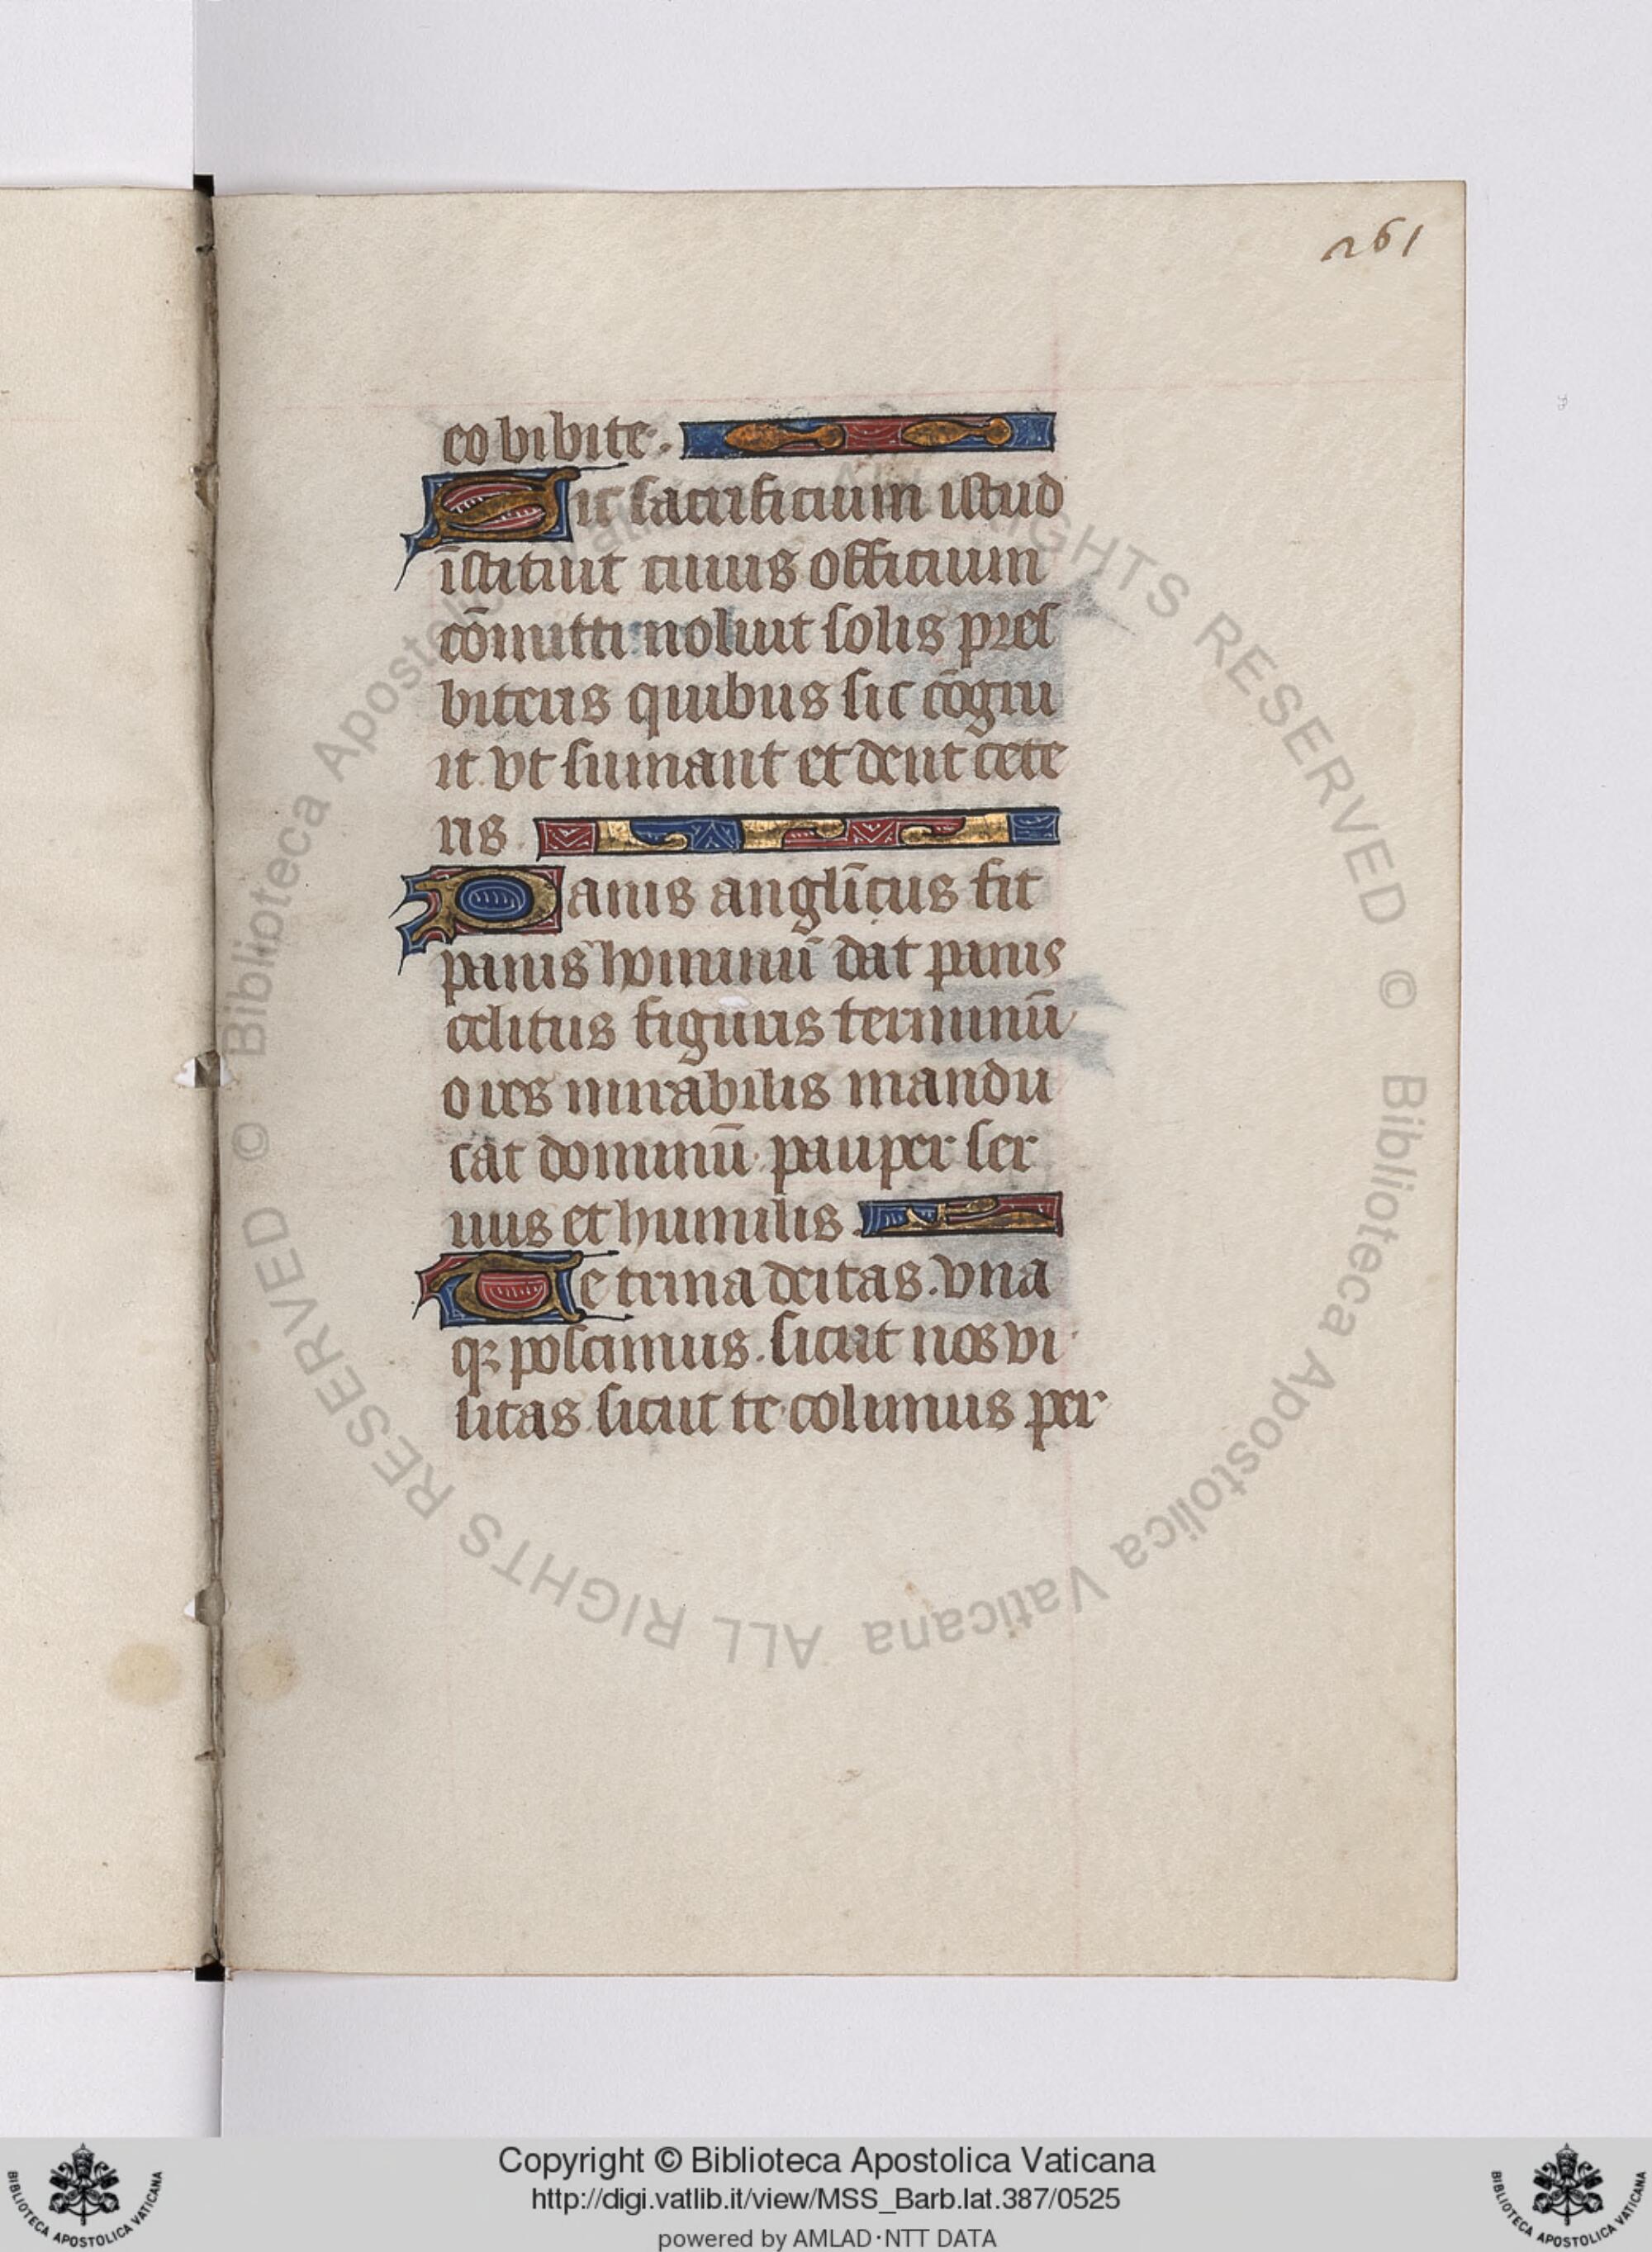 261
eo bibite.
Sic sacrificium istud
īstituit cuius officium
cōmitti noluit solis pres
biteris quibus sic cōgru
it vt sumant et dent cete
ris.
Panis anglīcus fit
panis hominū dat panis
celitus figuris terminū
o res mirabilis mandu
cat dominū pauper ser
uus et humilis.
Te trina deitas. vna
qꝫ poscimus. sicut nos vi
sitas sicut te colimus per
© Biblioteca Apostolica Vaticana ALL RIGHTS RESERVED
© Biblioteca Apostolica Vaticana ALL RIGHTS RESERVED
Copyright © Biblioteca Apostolica Vaticana
http://digi.vatlib.it/view/MSS_Barb.lat.387/0525
powered by AMLAD·NTT DATA
BIBLIOTECA APOSTOLICA VATICANA
BIBLIOTECA APOSTOLICA VATICANA